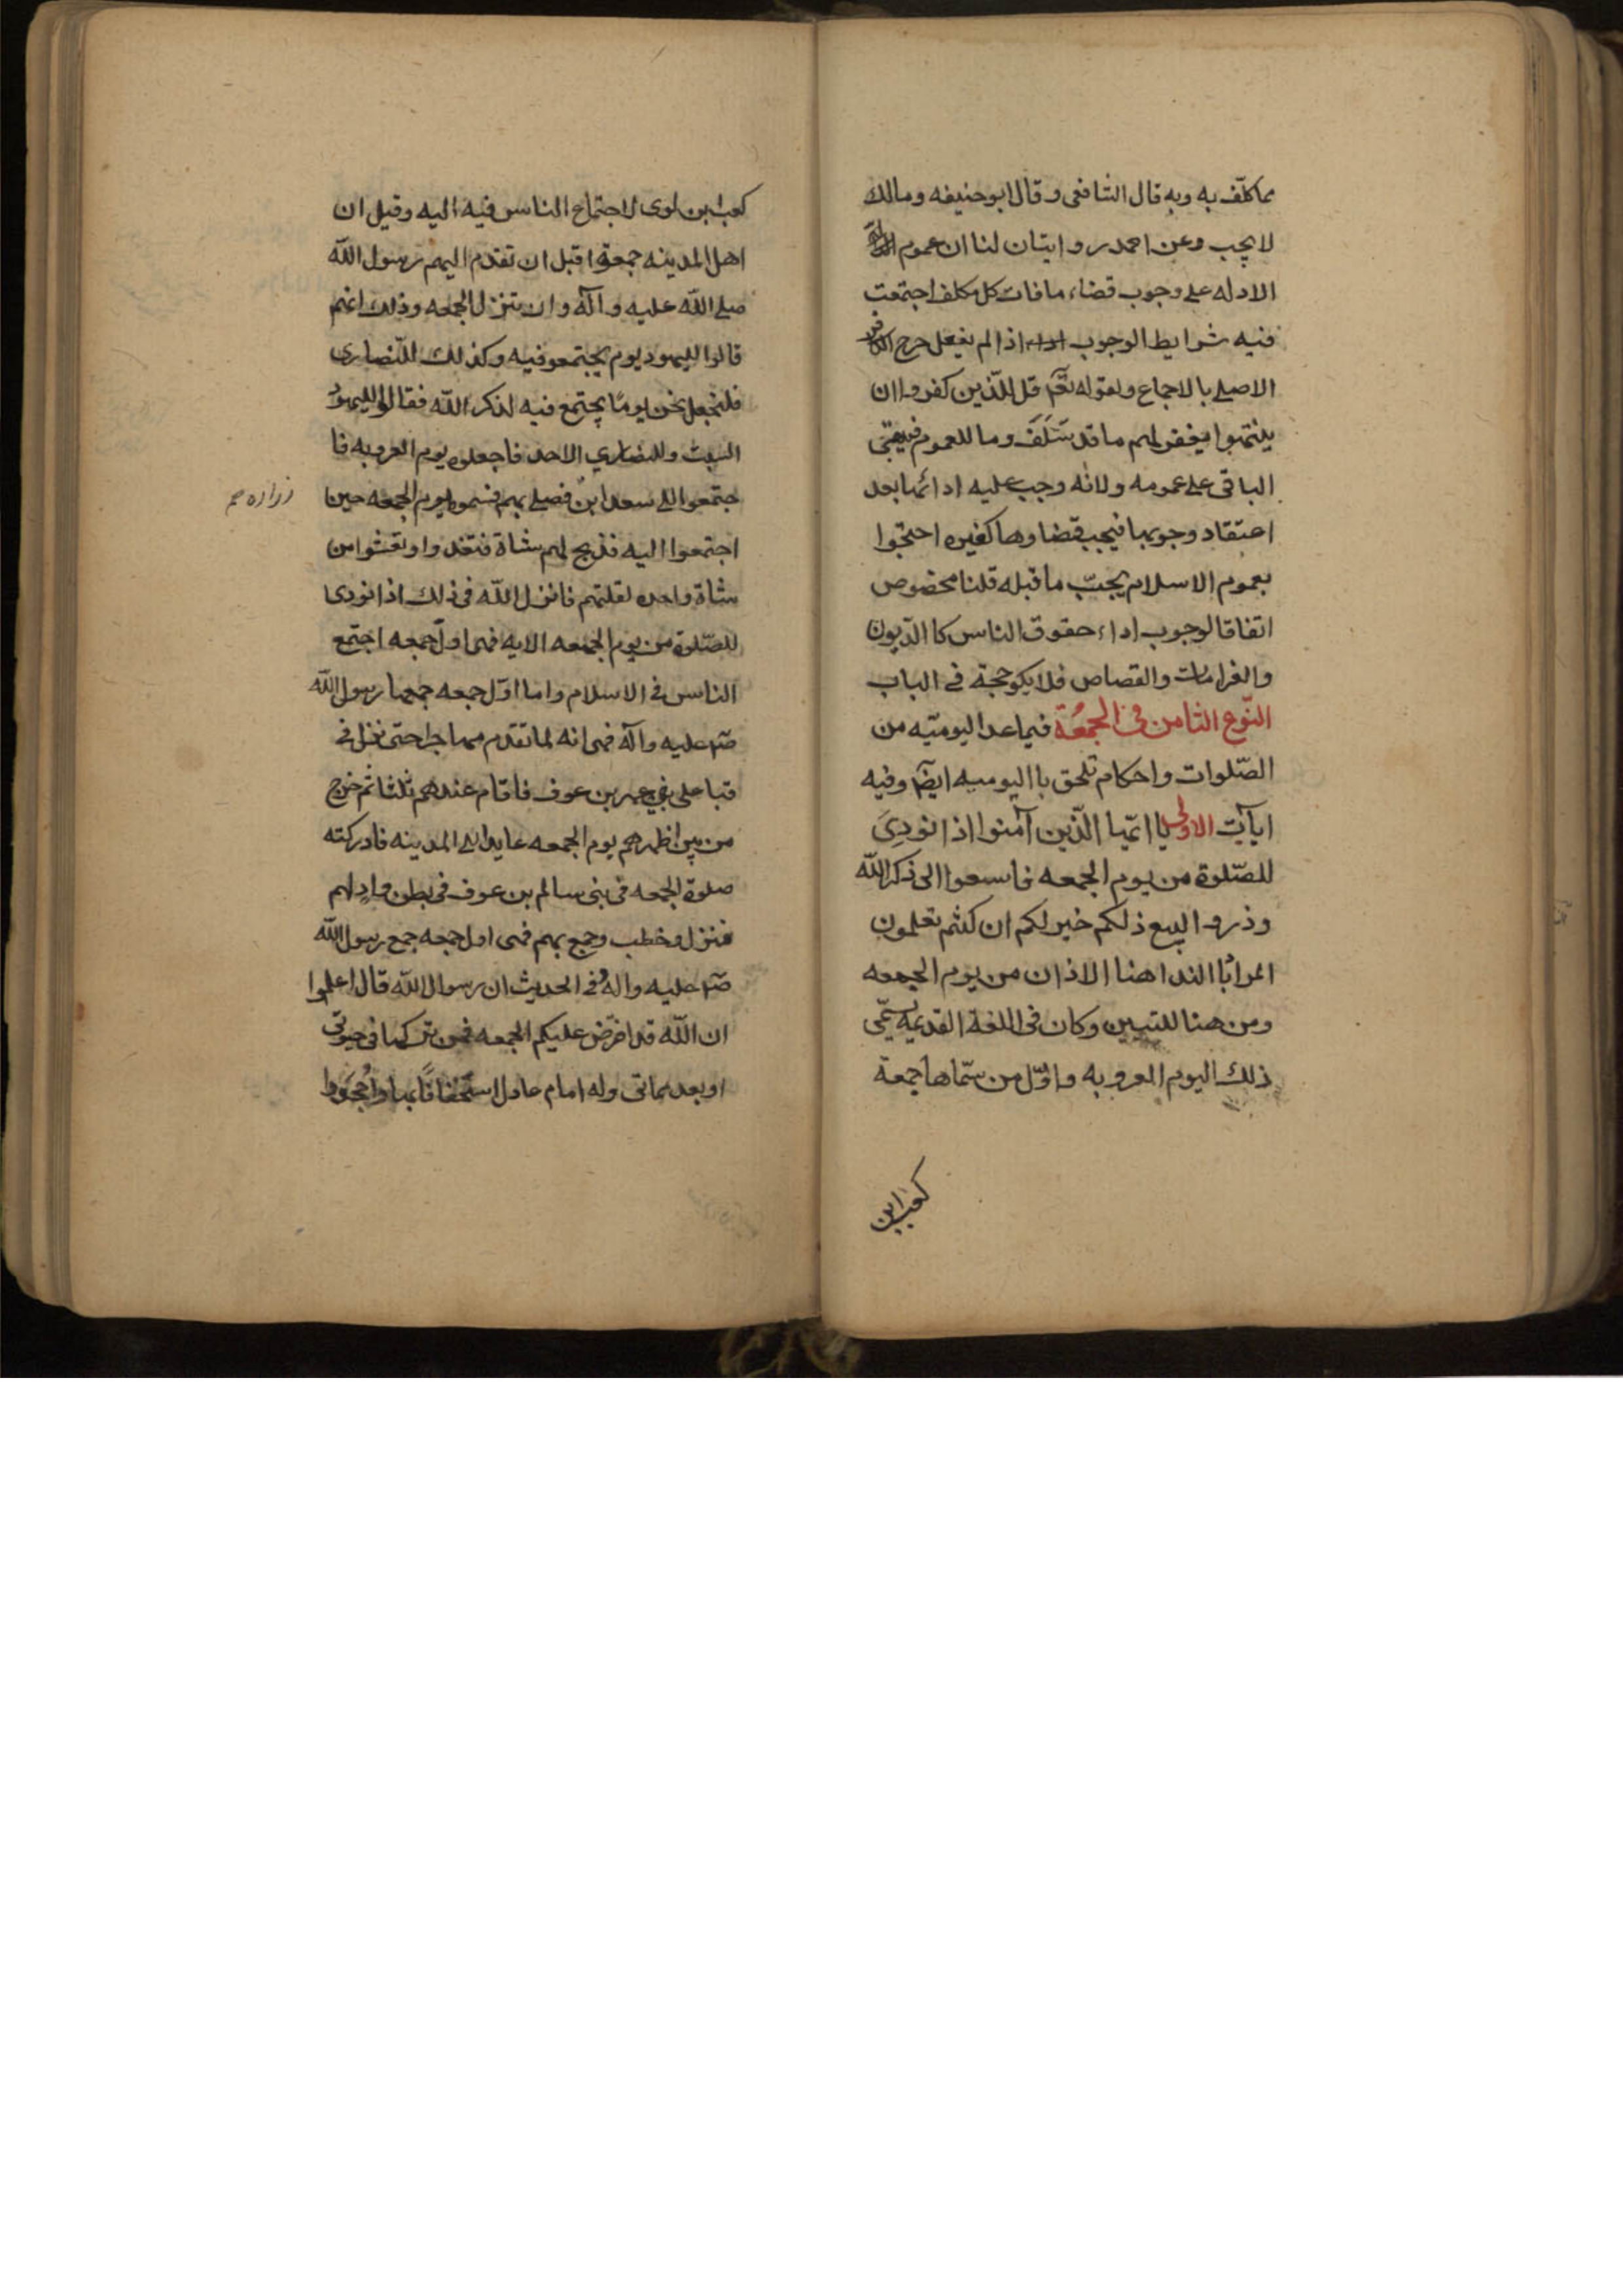 مما كلّف به وبه قال الشافعى وقال ابوحنيفه ومالك
لا يجب وعن احمد روايتان لنا ان عموم
الادله على وجوب قضاء ما فات كل مكلف اجتمعت
فيه شرايط الوجوب اذا لم يفعل خرج الكافر
الاصلى بالاجماع ولقوله تعّم قل للّذين كفروا ان
ينتهوا يغفر لهم ما قد سَلَفَ وما للعموم فيبقى
الباقى على عمومه ولانه وجب عليه ادائها بعد
اعتقاد وجوبها فيجب قضاوها كغيره احتجوا
بعموم الاسلام يجبّ ما قبله قلنا مخصوص
اتفاقا لوجوب اداء حقوق الناس كا الدّيون
والغرامات والقصاص فلا يكو حجة فى الباب
النّوع الثامن فى الجمعُة فيما عدا اليوميّه من
الصّلوات واحكام تلحق با اليوميه ايضًا وفيه
ايآيت الاولى يا ايّها الّذين آمنوا اذا نودِىَ
للصّلوة من يوم الجمعه فاسعوا الى ذكر اللّه
وذروا البيع ذلكم خير لكم ان كنتم تعلمون
المراد با الندا هنا الاذان من يوم الجمعه
ومن هنا للتبيين وكان فى اللغة القديمة يسمّى
ذلك اليوم العروبه واوّل من سمّاها جمعة
كعب ابن
كعب ابن لوى لاجتماع الناس فيه اليه وقيل ان
اهل المدينه جمعوا قبل ان تقدم اليهم رسول اللّه
صلى اللّه عليه وآله وان تنزل الجمعه وذلك انهم
قالوا لليهود يوم يجتمعو فيه وكذلك للنّصارى
فلنجعل نحن يومًا يجتمع فيه لذكر اللّه فقالوا لليهود
السبت وللنصارى الاحد فاجعلوه يوم العروبه فا
جتمعوا الى سعد ابن فصلى بهم فسموه يوم الجمعه حين
زراره صح
اجتمعوا اليه فذبح لهم شاة فتغدوا وتعشوا من
شاة واحده لقلتهم فانزل اللّه فى ذلك اذا نودى
للصّلوة من يوم الجمعه الايه فهى اول جمعه اجتمع
الناس فى الاسلام واما اوّل جمعه جمعها رسول اللّه
صّم عليه وآله فهى انه لما تقدم مهاجرا حتى نزل فى
قبا على بنى عمر بن عوف فاقام عندهم ثلثا ثم خرج
من بين اظهرهم يوم الجمعه عايدا الى المدينه فادركته
صلوة الجمعه فى بنى سالم بن عوف فى بطن وادٍ لهم
فنزل وخطب وجمع بهم فهى اول جمعه جمع رسول اللّه
صّم عليه واله وفى الحديث ان رسول اللّه قال اعلموا
ان اللّه قد افرّض عليكم الجمعه فمن تركها فى حيوتى
او بعد مماتى وله امام عادل استخفافًا بها